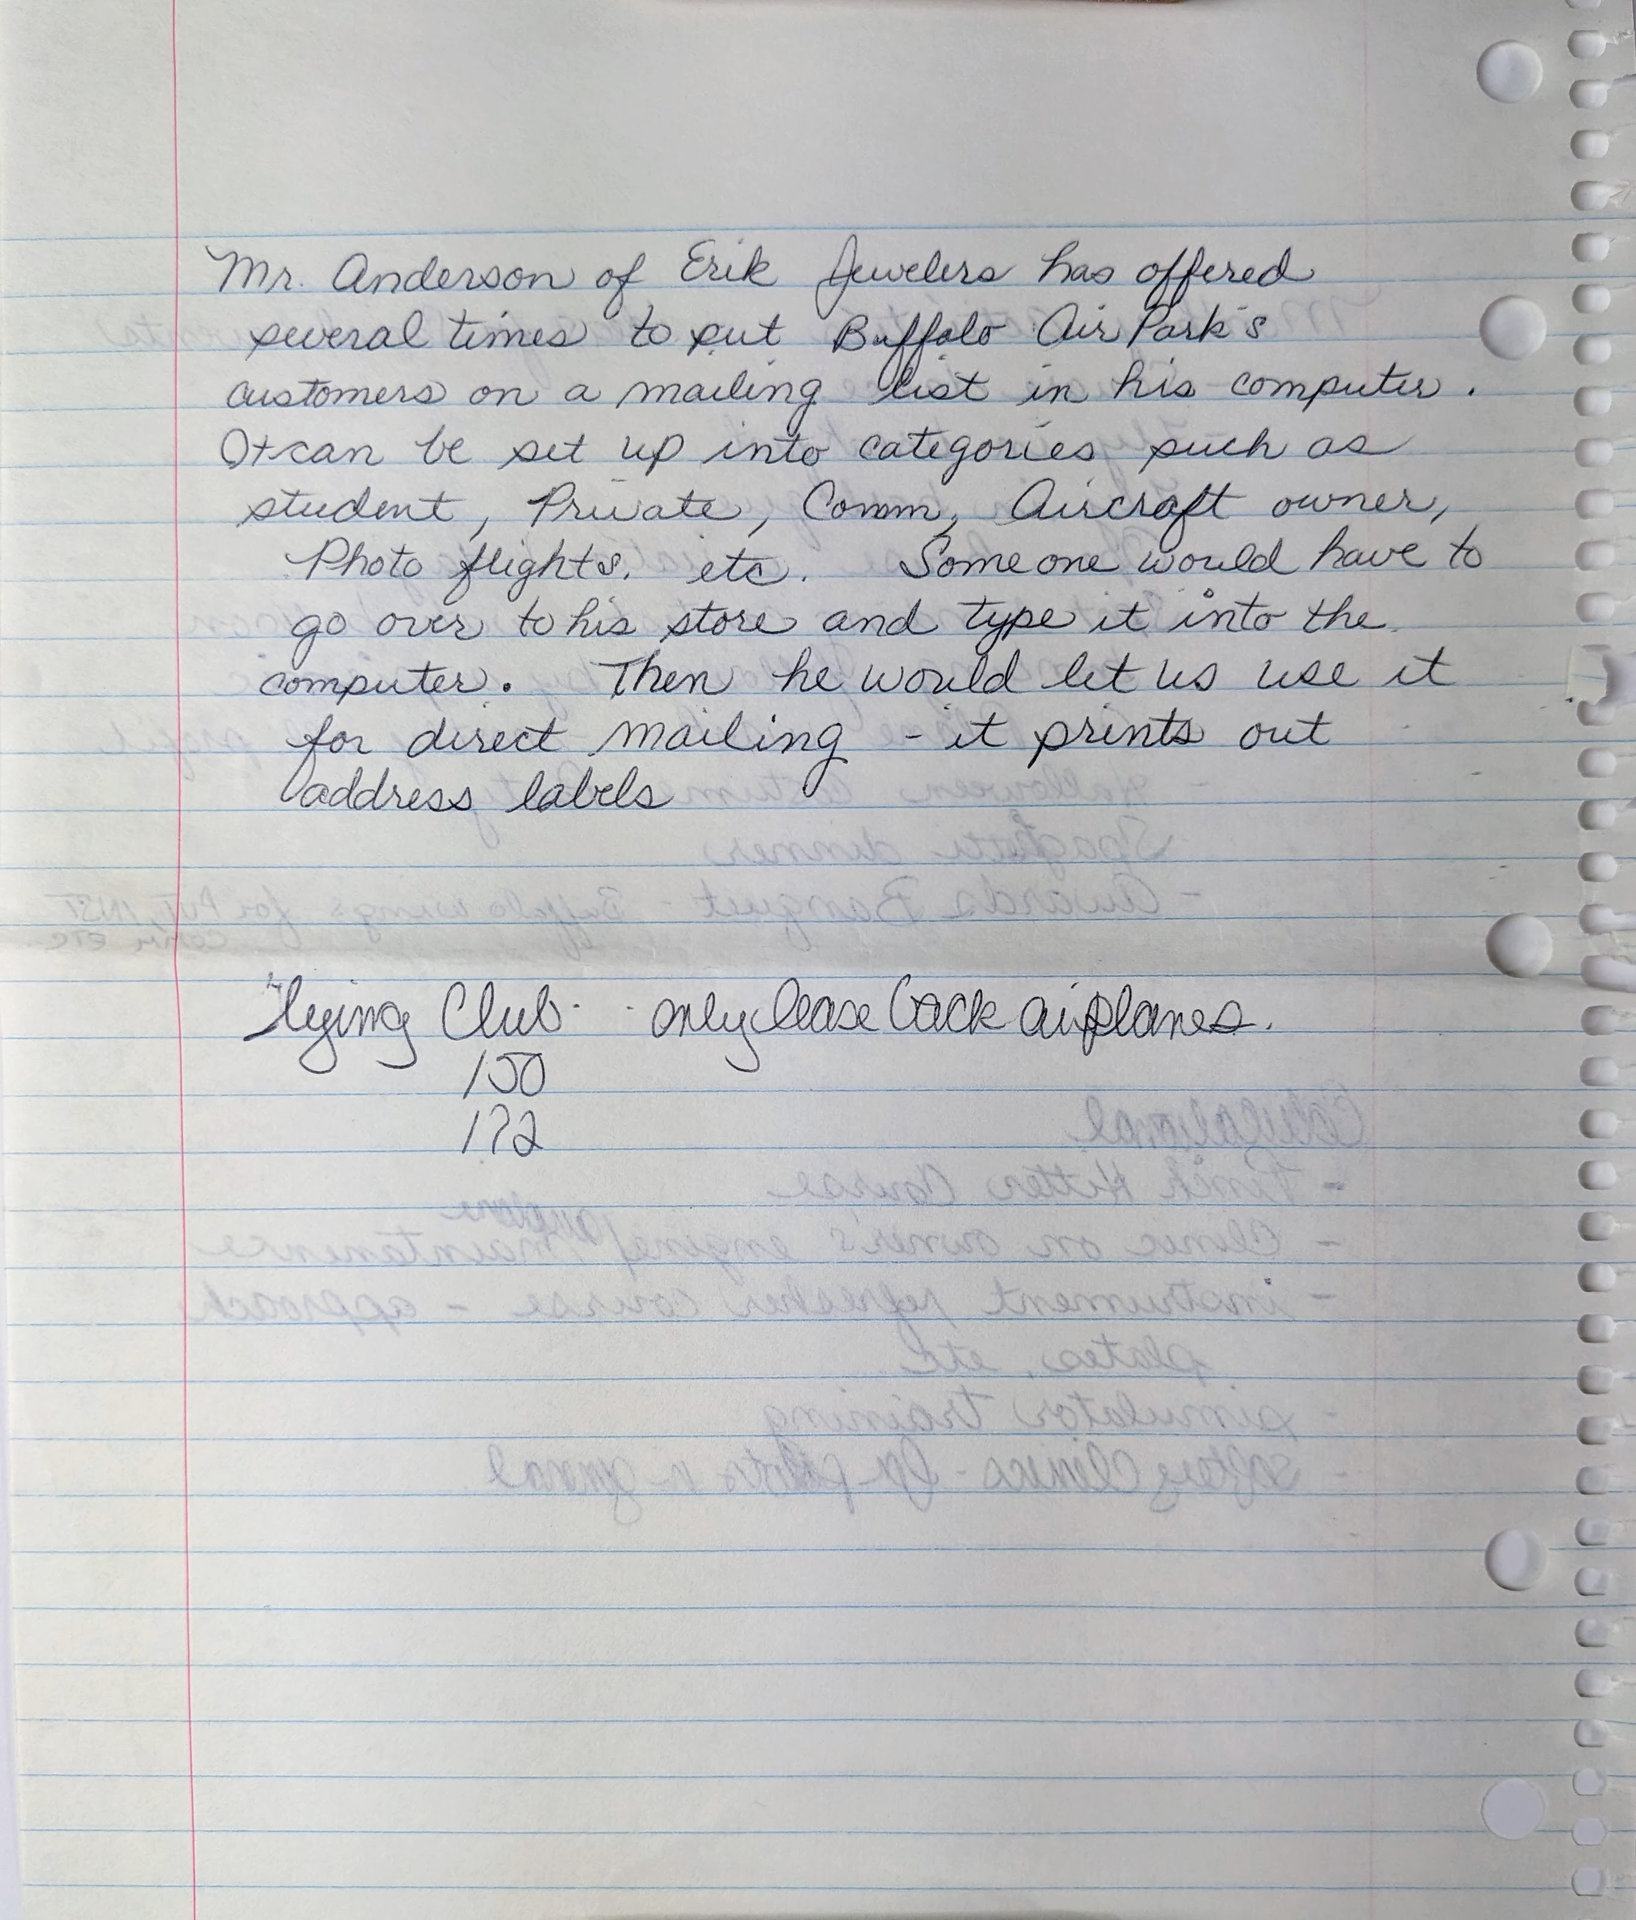 Mr. Anderson of Erik Jewelers has offered
several times to put Buffalo Air Park's
customers on a mailing list in his computer.
It can be set up into categories such as
student, Private, Comm, Aircraft owner,
Photo flights, etc. Someone would have to
go over to his store and type it into the
computer. Then he would let us use it
for direct mailing - it prints out
address labels
Flying Club - only lease back airplanes.
150
172